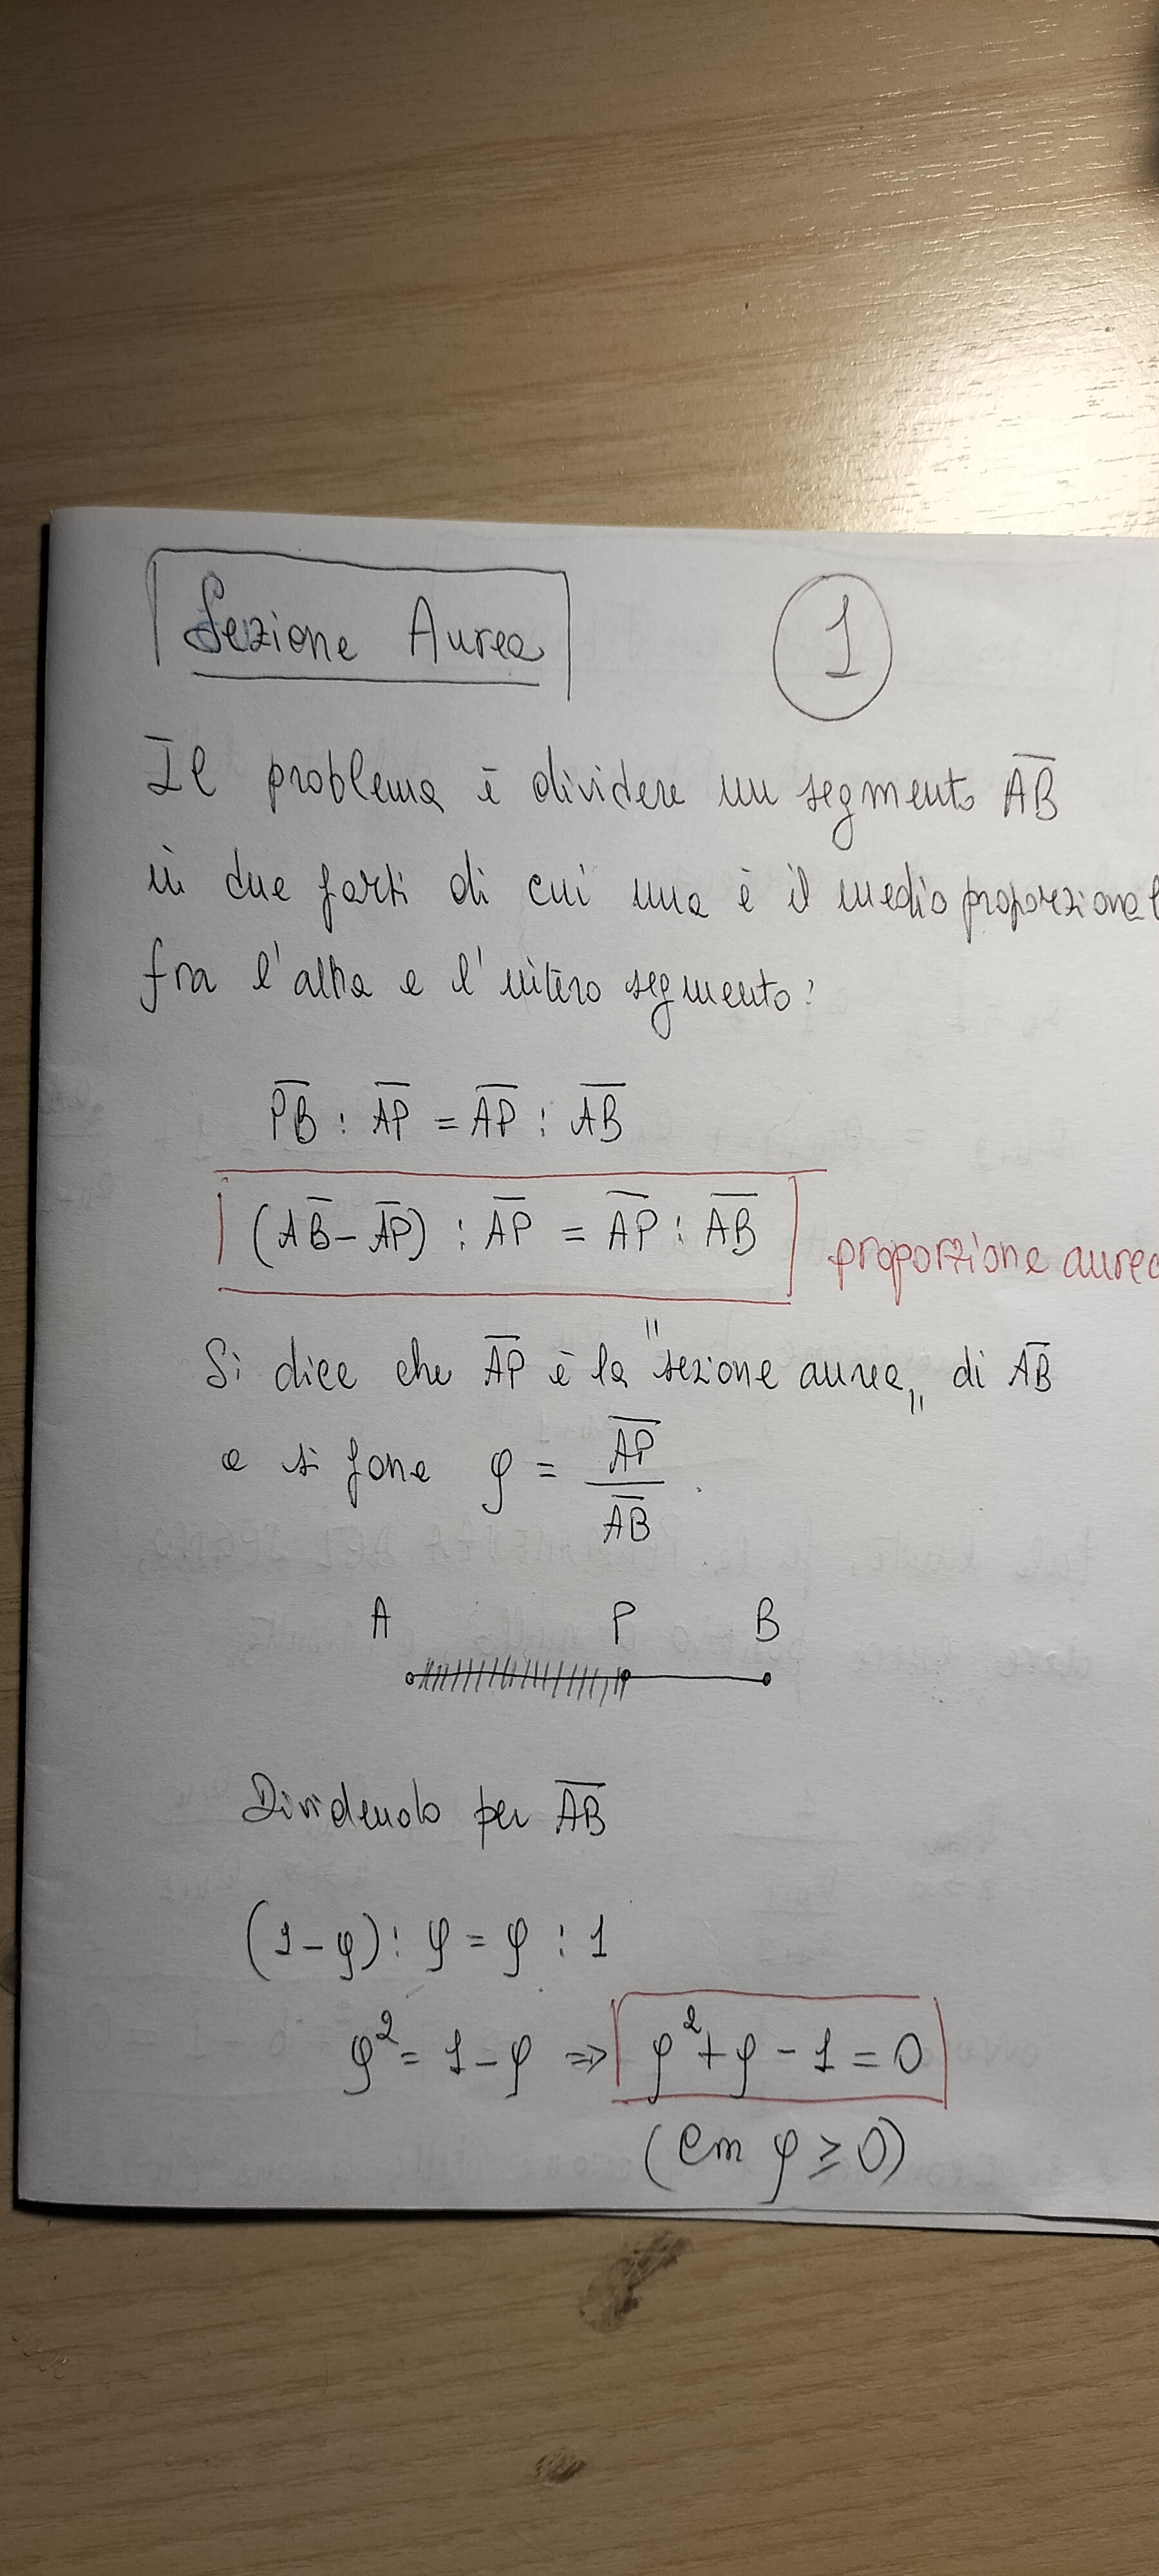 Sezione Aurea
1
Il problema è dividere un segmento A̅B̅
in due parti di cui una è il medio proporzional
fra l'altra e l'intero segmento:
P̅B̅ : A̅P̅ = A̅P̅ : A̅B̅
(A̅B̅ - A̅P̅) : A̅P̅ = A̅P̅ : A̅B̅ proporzione aurea
Si dice che A̅P̅ è la "sezione aurea" di A̅B̅
e si pone φ = A̅P̅ / A̅B̅.
A P B
Dividendo per A̅B̅
(1-φ) : φ = φ : 1
φ² = 1-φ ⇒ φ²+φ-1=0
(con φ ≥ 0)